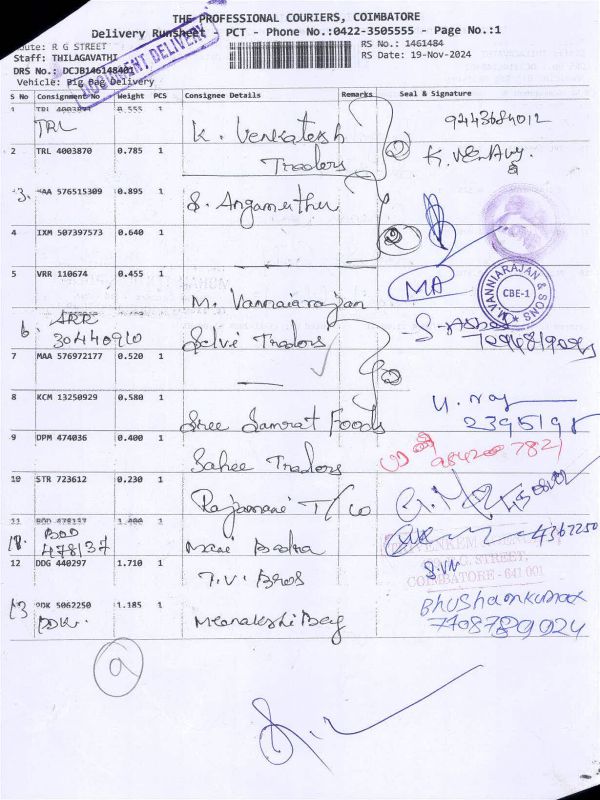 THE PROFESSIONAL COURIERS, COIMBATORE
Delivery Runsheet PCT - Phone No.:0422-3505555 - Page No.:1
Route: R G STREET
RS No.: 1461484
Staff: THILAGAVATHI
RS Date: 19-Nov-2024
DRS No.: DCJB146148401
DOCUMENT DELIVERY
Vehicle: Big Bag Delivery
S No Consignment No Weight PCS Consignee Details Remarks Seal & Signature
1 TRL 4003871 0.555 1
TRL K. Venkatesh 9443684012
2 TRL 4003870 0.785 1 Traders 2
3. MAA 576515309 0.895 1 S. Angamuthu
4 IXM 507397573 0.640 1 2
5 VRR 110674 0.455 1 M. Vannaiarajan MA
M. VANNIARAJAN & SONS CBE-1
6. 30440910 Selvi Traders
7 MAA 576972177 0.520 1 2
8 KCM 13250929 0.580 1 Sree Samrat Foods
9 DPM 474036 0.400 1 Sahee Traders
10 STR 723612 0.230 1 Rajamani T/co
11 BOD 478137 1.400 1
BOD 478137 Mani Badra 4362250
STREET,
COIMBATORE - 641 001
12 DDG 440297 1.710 1 T.V. Bros S.VN
13 PDK 5062250 1.185 1 Meenakshi Bag Bhushankumar
PDK. 7708789924
9